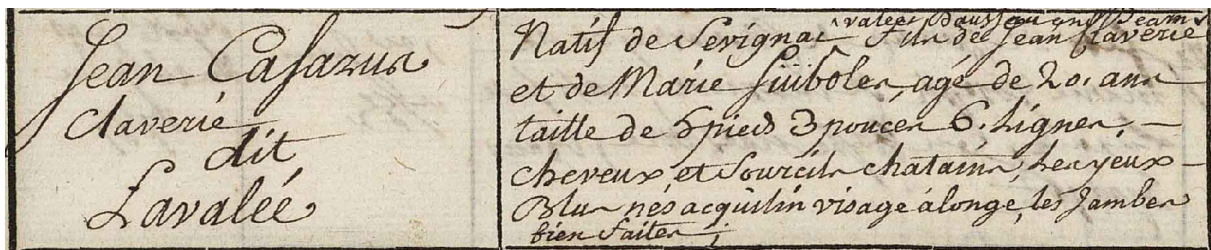 Jean Casasus
Claverie
dit
Lavalée
valée Daussau en Bearn
Natif de Sevignac fils de Jean Claverie
et de Marie agé de 20. ans
taille de 5 pieds 3 pouces 6. Lignes, —
cheveux, et Sourcils chatains, Les yeux —
Blus nés acquilin visage alongé, les Jambes
bien faites;